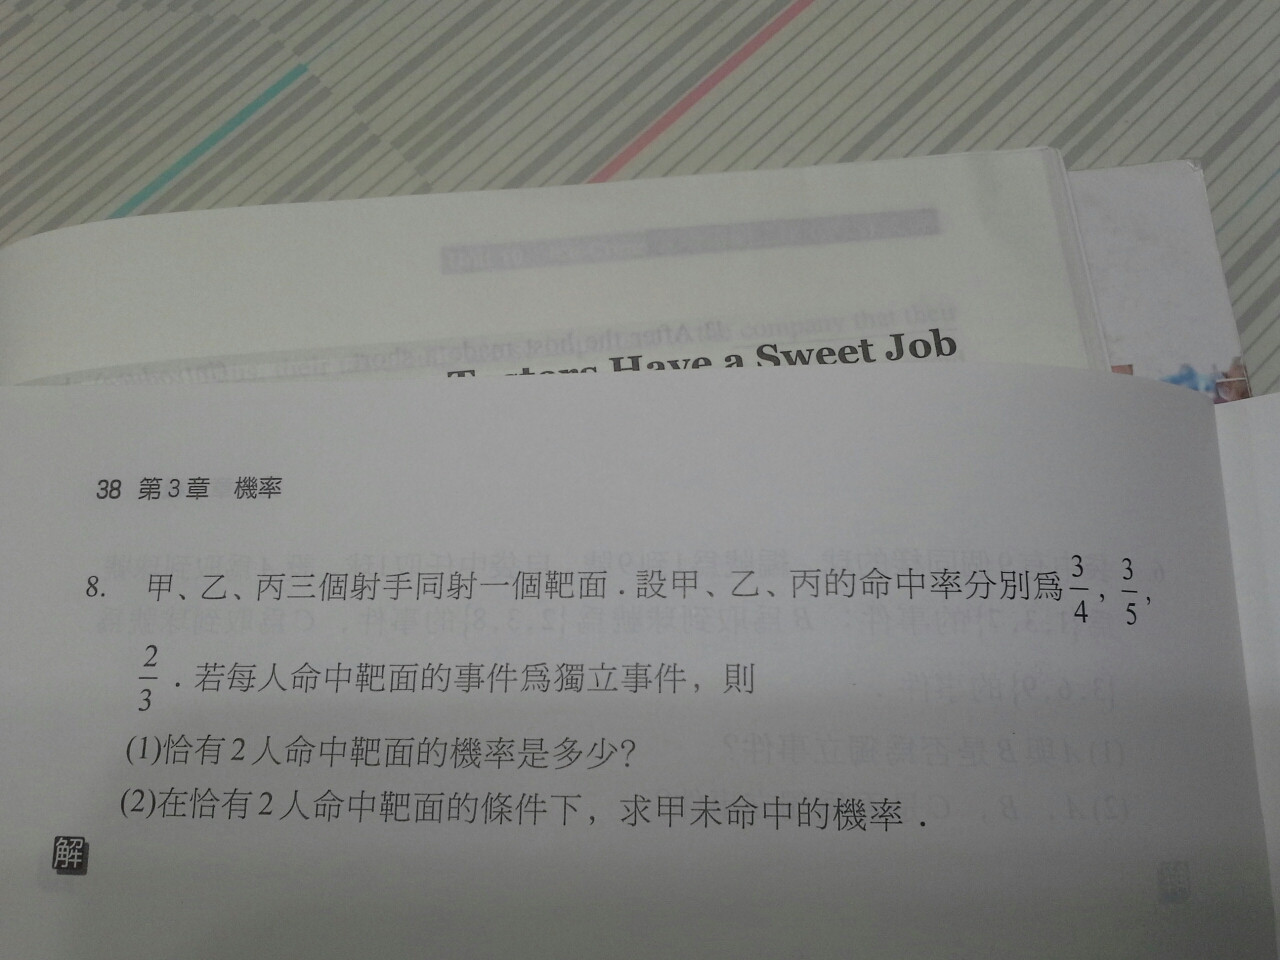 Have a Sweet Job
38 第3章 機率
8. 甲、乙、丙三個射手同射一個靶面.設甲、乙、丙的命中率分別爲3/4, 3/5,
2/3.若每人命中靶面的事件爲獨立事件,則
(1)恰有2人命中靶面的機率是多少?
(2)在恰有2人命中靶面的條件下,求甲未命中的機率.
解